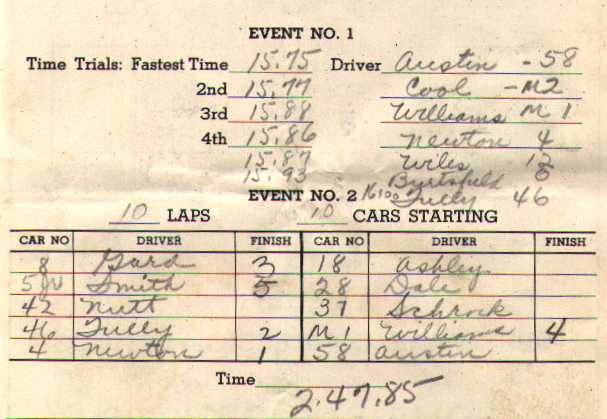 EVENT NO. 1
Time Trials: Fastest Time 15.75 Driver Austin - 58
2nd 15.77 Cool - M2
3rd 15.88 Williams M 1
4th 15.86 Newton 4
15.87 Wiles 12
15.93 Byrtsfield
EVENT NO. 2 16.100 Tully 46
10 LAPS 10 CARS STARTING
CAR NO DRIVER FINISH CAR NO DRIVER FINISH
8 Gard 3 18 Ashley
Smith 5 28 Dale
42 Nutt 37 Schrock
46 Tully 2 M 1 Williams 4
4 Newton 1 58 Austin
Time 2.47.85